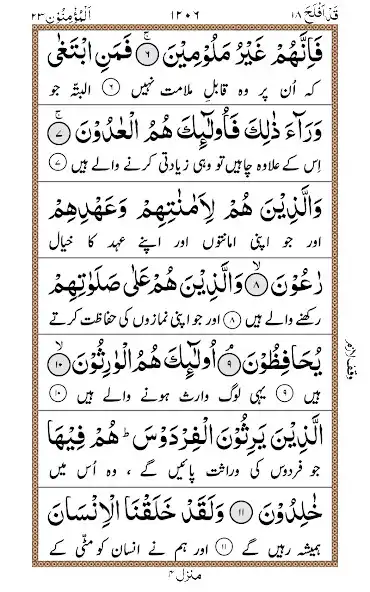 قَدْ اَفْلَحَ ۱۸ ۱۲۰۶ اَلْمُؤْمِنُوْن ۲۳
فَاِنَّهُمْ غَيْرُ مَلُوْمِيْنَ ۚ۶ فَمَنِ ابْتَغٰى
کہ اُن پر وہ قابلِ ملامت نہیں ۶ البتّہ جو
وَرَآءَ ذٰلِكَ فَاُولٰٓئِكَ هُمُ الْعٰدُوْنَ ۚ۷
اِس کے علاوہ چاہیں تو وہی زیادتی کرنے والے ہیں ۷
وَالَّذِيْنَ هُمْ لِاَمٰنٰتِهِمْ وَعَهْدِهِمْ
اور جو اپنی امانتوں اور اپنے عہد کا خیال
رٰعُوْنَ ۙ۸ وَالَّذِيْنَ هُمْ عَلٰى صَلَوٰتِهِمْ
رکھنے والے ہیں ۸ اور جو اپنی نمازوں کی حفاظت کرتے
يُحَافِظُوْنَ ۘ۹ اُولٰٓئِكَ هُمُ الْوٰرِثُوْنَ ۙ۱۰
ہیں ۹ یہی لوگ وارث ہونے والے ہیں ۱۰
الَّذِيْنَ يَرِثُوْنَ الْفِرْدَوْسَ ؕ هُمْ فِيْهَا
جو فردوس کی وراثت پائیں گے ، وہ اُس میں
خٰلِدُوْنَ ۱۱ وَلَقَدْ خَلَقْنَا الْاِنْسَانَ
ہمیشہ رہیں گے ۱۱ اور ہم نے انسان کو مٹّی کے
وقف لازم
منزل ۴